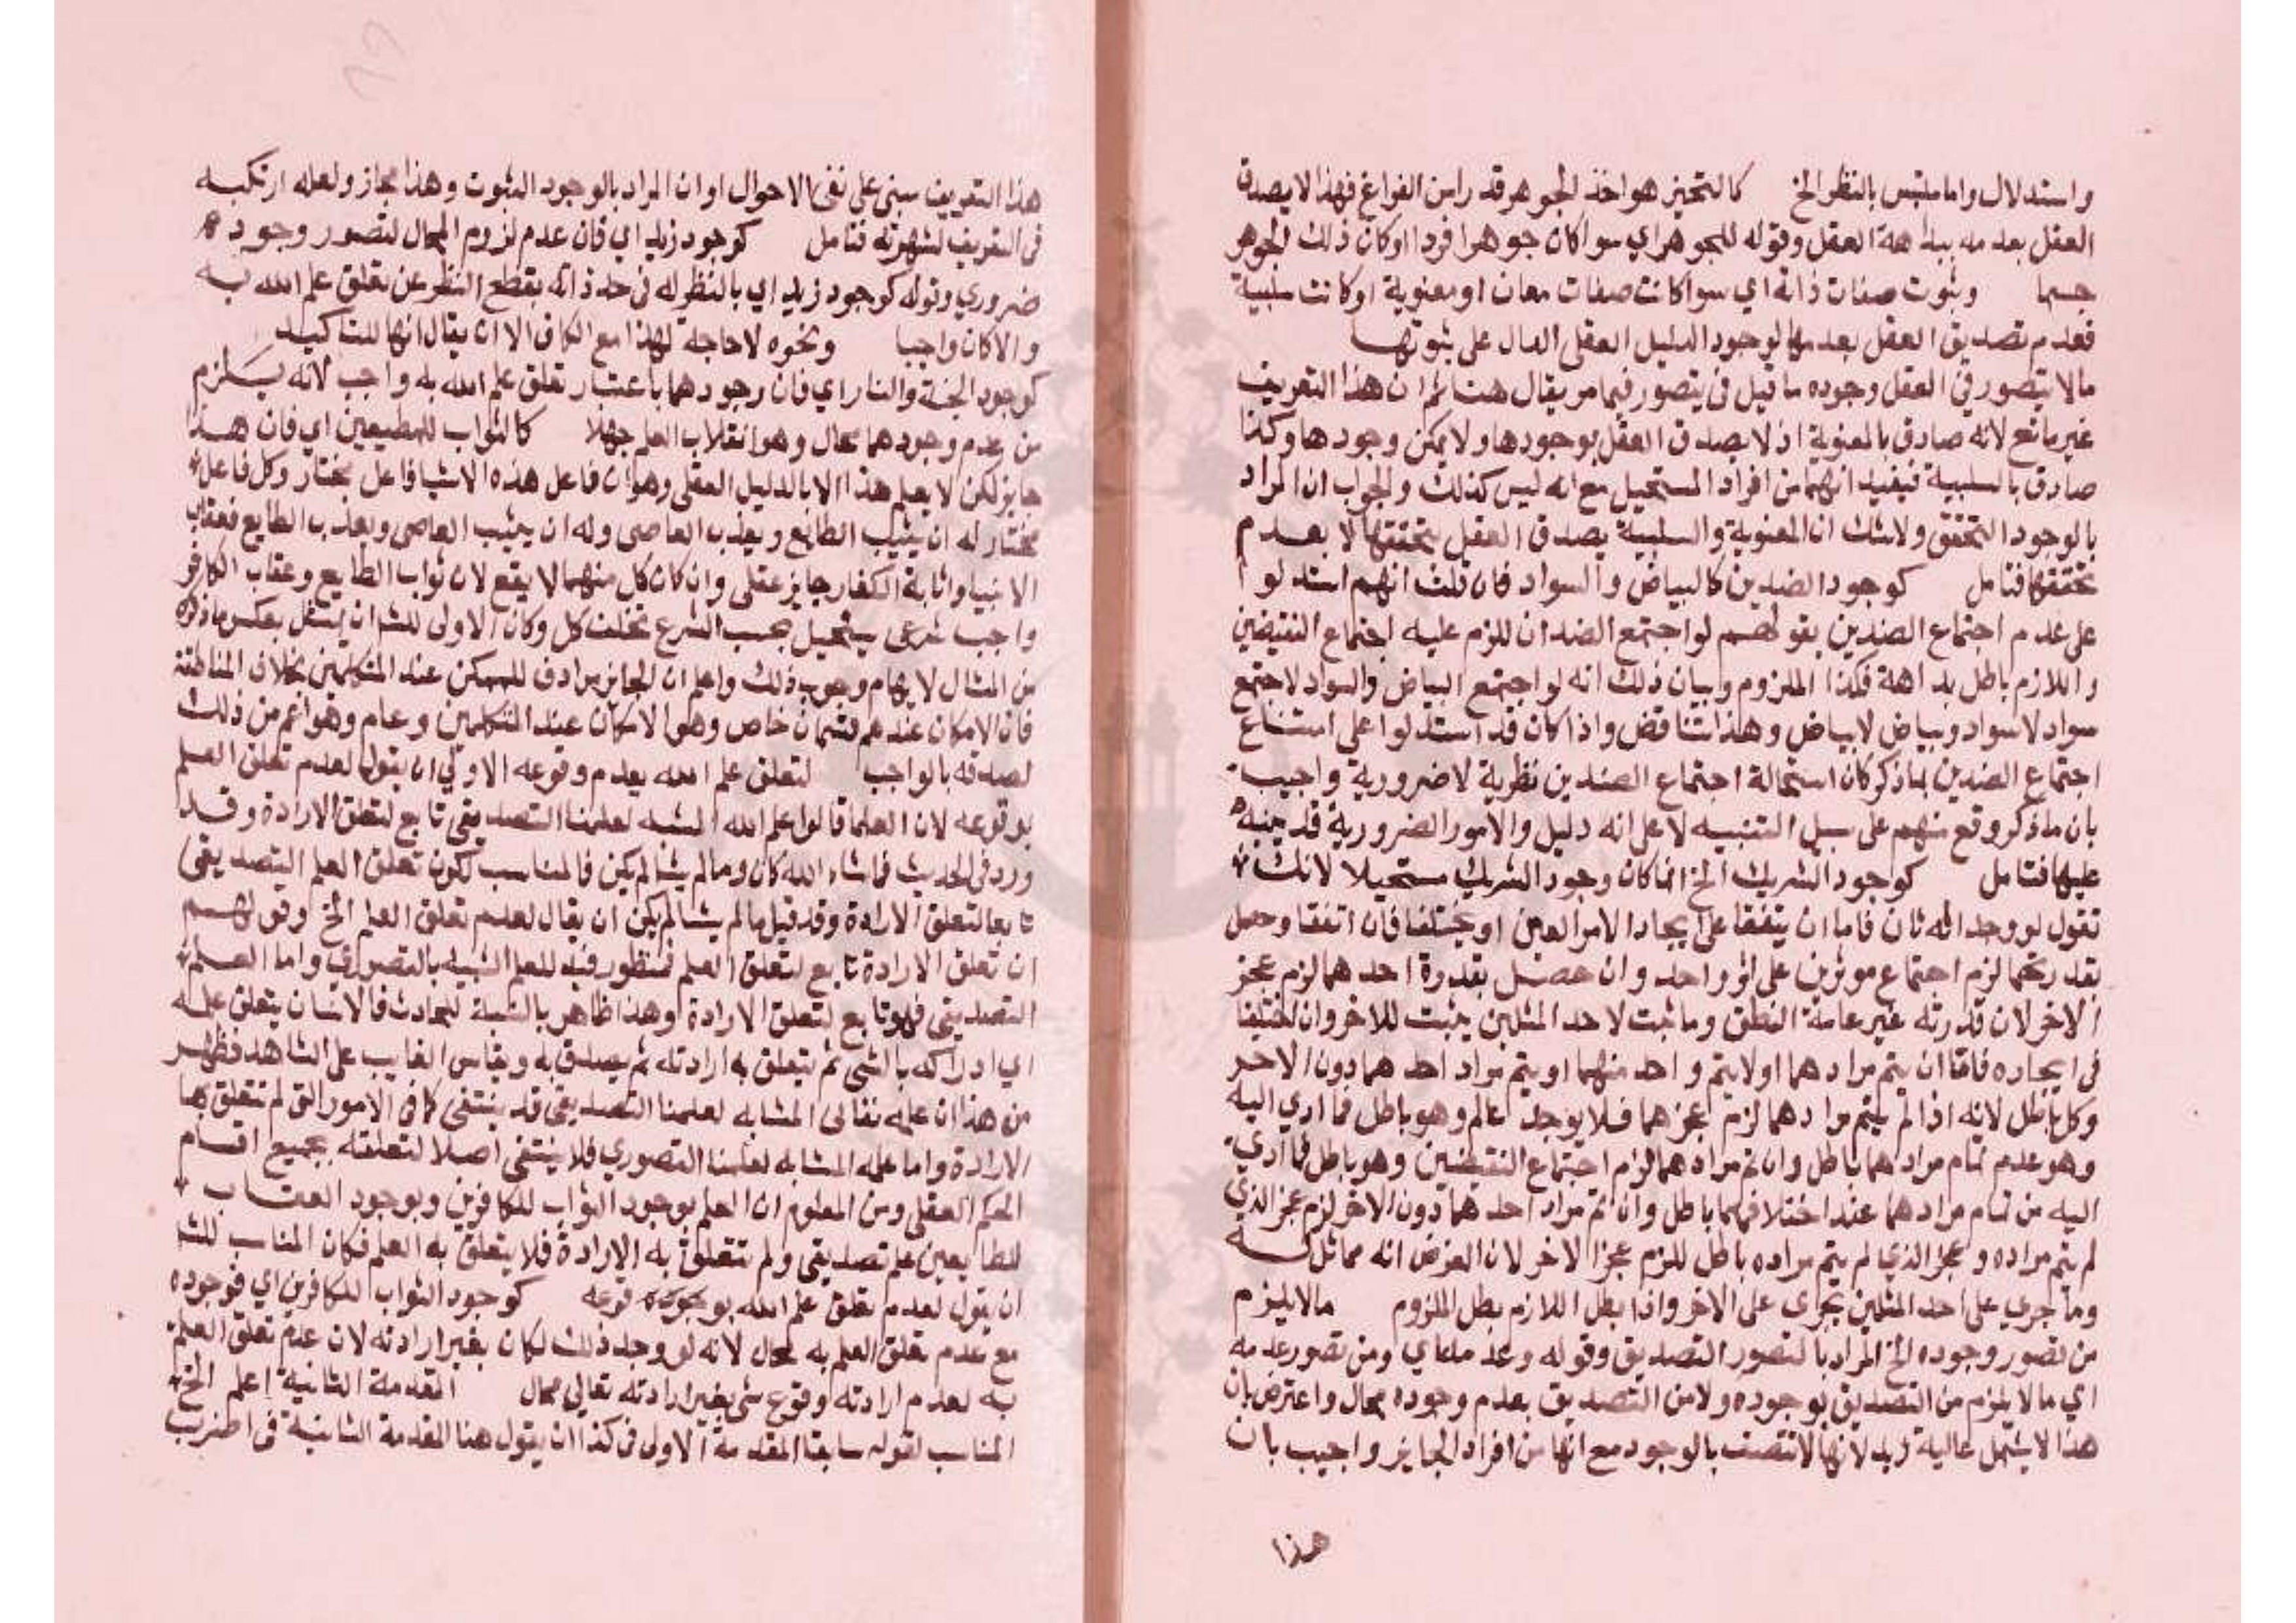 واستدلال واما ملتبس بالنظر الخ كالتحيز هو اخذ الجوهر قدرا من الفراغ فهذا لا يصدق
العقل بعدمه ببداهة العقل وقوله للجوهر اي سوا كان جوهرا فردا او كان ذلك الجوهر
جسما وثبوت صفات ذاته اي سوا كانت صفات معان او معنوية او كانت سلبية
فعدم تصديق العقل بعدمها لوجود الدليل العقلي الدال على ثبوتها
مالا يتصور في العقل وجوده ما قيل في يتصور فيما مر يقال هنا ثم ان هذا التعريف
غير مانع لانه صادق بالمعنوية اذ لا يصدق العقل بوجودها ولا يمكن وجودها وكذا
صادق بالسلبية فيفيد انهما من افراد المستحيل مع انه ليس كذلك والجواب ان المراد
بالوجود التحقق ولا شك ان المعنوية والسلبية يصدق العقل بتحققها لا بعدم
تحققها فتامل كوجود الضدين كالبياض والسواد فان قلت انهم استدلوا
على عدم اجتماع الضدين بقولهم لو اجتمع الضدان للزم عليه اجتماع النقيضين
واللازم باطل بداهة فكذا الملزوم وبيان ذلك انه لو اجتمع البياض والسواد لاجتمع
سواد لا سواد وبياض لا بياض وهذا تناقض واذا كان قد استدلوا على امتناع
اجتماع الضدين لما ذكر كان استحالة اجتماع الضدين نظرية لا ضرورية واجيب
بان ما ذكر وقع منهم على سبيل التنبيه لا على انه دليل والامور الضرورية قد ينبه
عليها فتامل كوجود الشريك الخ انما كان وجود الشريك مستحيلا لانك
تقول لو وجد اله ثان فاما ان يتفقا على ايجاد الامر المعين او يختلفا فان اتفقا وحصل
بقدرتهما لزم اجتماع موثرين على اثر واحد وان حصل بقدرة احدهما لزم عجز
الاخر لان قدرته غير عامة التعلق وما ثبت لاحد المثلين يثبت للاخر وان اختلفا
في ايجاده فاما ان يتم مرادهما او لا يتم واحد منهما او يتم مراد احدهما دون الاخر
وكل باطل لانه اذا لم يتم مرادهما لزم عجزهما فلا يوجد عالم وهو باطل فما ادي اليه
وهو عدم تمام مرادهما باطل وان تم مرادهما لزم اجتماع النقيضين وهو باطل فما ادي
اليه من تمام مرادهما عند اختلافهما باطل وان تم مراد احدهما دون الاخر لزم عجز الذي
لم يتم مراده وعجز الذي لم يتم مراده باطل للزم عجز الاخر لان الفرض انه مماثل له
وما جري على احد المثلين يجري على الاخر واذا بطل اللازم بطل الملزوم مالا يلزم
من تصور وجوده الخ المراد بالتصور التصديق وقوله وعدمه اي ومن تصور عدمه
اي ما لا يلزم من التصديق بوجوده ولا من التصديق بعدم وجوده محال واعترض بان
هذا لا يشمل عالية زيد لانها لا تتصف بالوجود مع انها من افراد الجايز واجيب بان
هذا
هذا التعريف مبني على نفي الاحوال او ان المراد بالوجود الثبوت وهذا مجاز ولعله ارتكبه
في التعريف لشهرته فتامل كوجود زيد اي فان عدم لزوم المحال لتصور وجوده
ضروري وقوله كوجود زيد اي بالنظر له في حد ذاته بقطع النظر عن تعلق علم الله به
والا كان واجبا ونحوه لا حاجة لهذا مع الكاف الا ان يقال انها للتاكيد
كوجود الجنة والنار اي فان وجودهما باعتبار تعلق علم الله به واجب لانه يستلزم
من عدم وجودهما محال وهو انقلاب العلم جهلا كالثواب للمطيعين اي فان هذا
جايز لكن لا يعلم هذا الا بالدليل العقلي وهو ان فاعل هذه الاشيا فاعل مختار وكل فاعل
مختار له ان يثيب الطايع ويعذب العاصي وله ان يثيب العاصي ويعذب الطايع فعقاب
الانبيا واثابة الكفار جايز عقلي وان كان كل منهما لا يقع لان ثواب الطايع وعقاب الكافر
واجب شرعي يستحيل بحسب الشرع تخلف كل وكان الاولى للشر ان يمثل بعكس ما ذكره
من المثال لايهام وجوب ذلك واعلم ان الجايز مرادف للممكن عند المتكلمين بخلاف المناطقة
فان الامكان عندهم قسمان خاص وهو الامكان عند المتكلمين وعام وهو اعم من ذلك
لصدقه بالواجب لتعلق علم الله بعدم وقوعه الاولي ان يقول لعدم تعلق العلم
بوقوعه لان العلما قالوا علم الله المشبه لعلمنا التصديقي تابع لتعلق الارادة وقد
ورد في الحديث فما شاء الله كان وما لم يشا لم يكن فالمناسب لكون تعلق العلم التصديقي
تابعا لتعلق الارادة وقد قيل ما لم يشا لم يكن ان يقال لعدم تعلق العلم الخ وقولهم
ان تعلق الارادة تابع لتعلق العلم فمنظور فيه للعلم الشبيه بالتصوري واما العلم
التصديقي فهو تابع لتعلق الارادة وهذا ظاهر بالنسبة للحادث فالانسان يتعلق علمه
اي ادراكه بالشي ثم تتعلق به ارادته ثم يصدق به ويقاس الغايب على الشاهد فظهر
من هذا ان علمه تعالى المشابه لعلمنا التصديقي قد ينتفي كما في الامور التي لم تتعلق بها
الارادة واما علمه المشابه لعلمنا التصوري فلا ينتفي اصلا لتعلقه بجميع اقسام
الحكم العقلي ومن المعلوم ان العلم بوجود الثواب للكافرين وبوجود العقاب
للطايعين علم تصديقي ولم تتعلق به الارادة فلا يتعلق به العلم فكان المناسب للشر
ان يقول لعدم تعلق علم الله بوقوعه كوجود الثواب للكافرين اي فوجوده
مع عدم تعلق العلم به محال لانه لو وجد ذلك لكان بغير ارادته لان عدم تعلق العلم
به لعدم ارادته ووقوع شي بغير ارادته تعالي محال المقدمة الثانية اعلم الخ
المناسب لقوله سابقا المقدمة الاولى في كذا ان يقول هنا المقدمة الثانية في اضرب